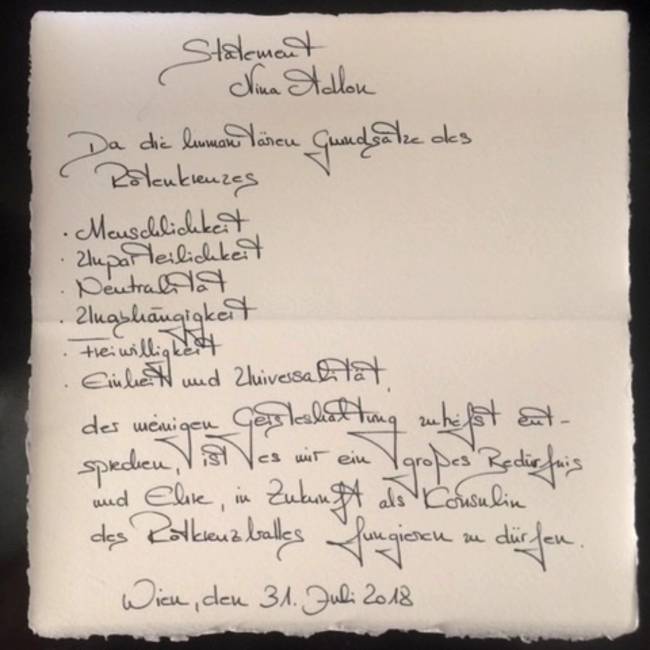 Statement
Nina Adlon
Da die humanitären Grundsätze des
Rotenkreuzes
· Menschlichkeit
· Unparteilichkeit
· Neutralität
· Unabhängigkeit
· Freiwilligkeit
· Einheit und Universalität,
der meinigen Geisteshaltung zutiefst ent-
sprechen, ist es mir ein großes Bedürfnis
und Ehre, in Zukunft als Konsulin
des Rotkreuzballes fungieren zu dürfen.
Wien, den 31. Juli 2018